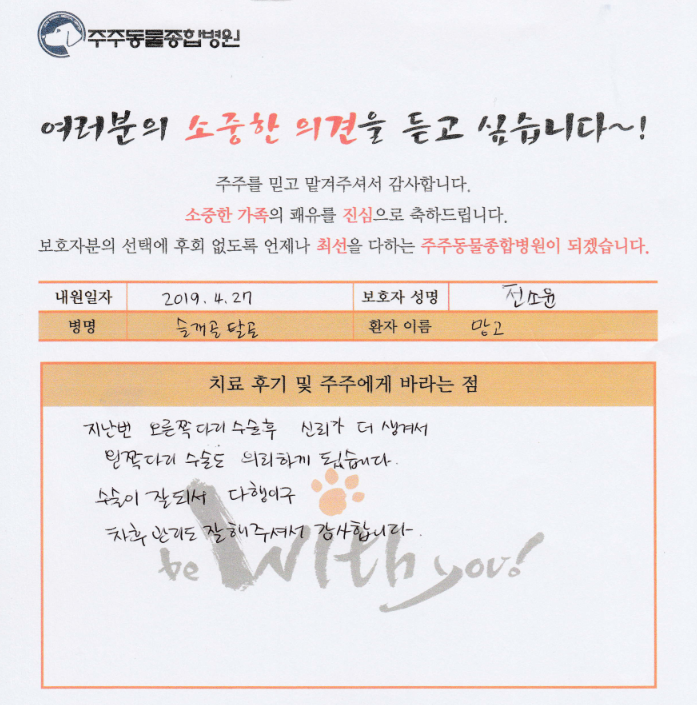 주주동물종합병원
여러분의 소중한 의견을 듣고 싶습니다~!
주주를 믿고 맡겨주셔서 감사합니다.
소중한 가족의 쾌유를 진심으로 축하드립니다.
보호자분의 선택에 후회 없도록 언제나 최선을 다하는 주주동물종합병원이 되겠습니다.
내원일자 2019. 4. 27 보호자 성명 전소윤
병명 슬개골 탈골 환자 이름 망고
치료 후기 및 주주에게 바라는 점
지난번 오른쪽다리 수술후 신뢰가 더 생겨서
왼쪽다리 수술도 의뢰하게 됬습니다.
수술이 잘되서 다행이구
차후 관리도 잘해주셔서 감사합니다.
be With you!